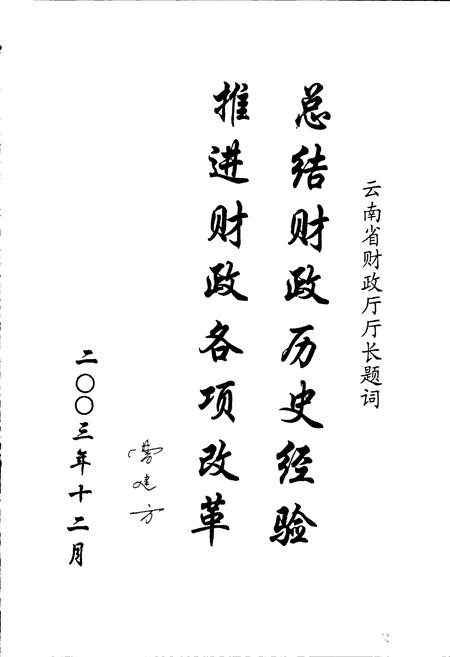 云南省财政厅厅长题词
总结财政历史经验
推进财政各项改革
建方
二〇〇三年十二月